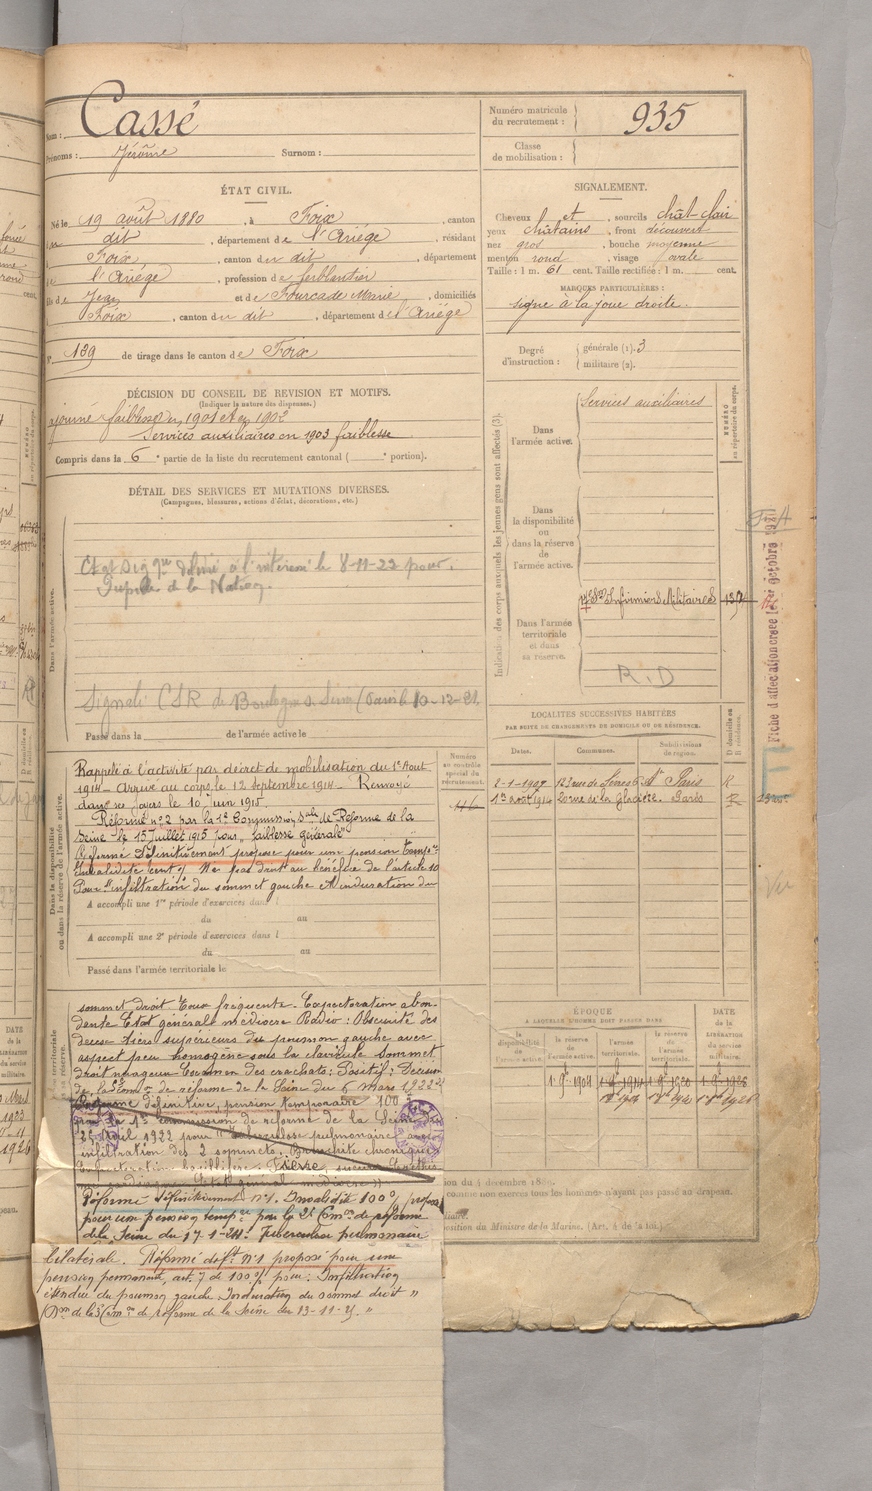 Nom : Cassé
Prénoms : Jérôme Surnom :
ÉTAT CIVIL.
Né le 19 août 1880, à Foix, canton
dit, département de l'Ariège, résidant
Foix, canton du dit, département
l'Ariège, profession de ferblantier
fils de Jean et de Fourcade Marie, domiciliés
Foix, canton du dit, département de l'Ariège
N° 139 de tirage dans le canton de Foix
DÉCISION DU CONSEIL DE REVISION ET MOTIFS.
(Indiquer la nature des dispenses.)
ajourné faiblesse en 1901 et en 1902
Services auxiliaires en 1903 faiblesse
Compris dans la 6e partie de la liste du recrutement cantonal ( e portion).
DÉTAIL DES SERVICES ET MUTATIONS DIVERSES.
(Campagnes, blessures, actions d'éclat, décorations, etc.)
Dans l'armée active.
délivré à l'intéressé le 8-11-22 pour
Pupille de la Nation.
Signalé CSR de Boulogne s. Seine (Paris) le 10-12-21
Passé dans la de l'armée active le
Dans la disponibilité
ou dans la réserve de l'armée active.
Rappelé à l'activité par décret de mobilisation du 1er Aout
1914 - Arrivé au corps le 12 Septembre 1914 - Renvoyé
dans ses foyers le 10 Juin 1915.
Réformé n° 2 par la 1e Commission Sple de Réforme de la
Seine le 15 Juillet 1915 pour "faiblesse générale"
Réformé Définitivement proposé pour une pension temp.re
Invalidité cent % N'a pas droit au bénéfice de l'article 10
Pour "infiltration du sommet gauche et induration du
A accompli une 1re période d'exercices dans l
du au
A accompli une 2e période d'exercices dans l
du au
Passé dans l'armée territoriale le
sommet droit Toux fréquente - Expectoration abon-
dante Etat général médiocre Radio : Obscurité des
deux tiers supérieurs du poumon gauche avec
aspect peu homogène sous la clavicule Sommet
droit nuageux Examen des crachats : Positif : Décision
de la Common de réforme de la Seine du 6 Mars 1922
Réforme définitive, pension temporaire 100 %
par la 1e commission de réforme de la Seine du
25 Avril 1922 pour "tuberculose pulmonaire avec
infiltration des 2 sommets. Bronchite chronique
Expectoration bacillifère. Fièvre, sueurs
Etat général médiocre"
Réformé définitivement n°1. Invalidité 100 % proposé
pour une pension temp.re par la 2e Comon de réforme
de la Seine du 17-1-24. Tuberculose pulmonaire
bilatérale. Réformé déft n°1 proposé pour une
pension permanente, art. 7 de 100 % pour : Infiltration
étendue du poumon gauche Induration du sommet droit "
de la 3e Comon de réforme de la Seine du 13-11-25. "
Numéro matricule
du recrutement : 935
Classe
de mobilisation :
SIGNALEMENT.
Cheveux et, sourcils chât-clair
yeux châtains, front découvert
nez gros, bouche moyenne
menton rond, visage ovale
Taille : 1 m. 61 cent. Taille rectifiée : 1 m. cent.
MARQUES PARTICULIÈRES :
signe à la joue droite.
Degré
d'instruction :
générale (1). 3
militaire (2).
Indication des corps auxquels les jeunes gens sont affectés (3).
NUMÉRO
au répertoire du corps.
Dans
l'armée active.
Services auxiliaires
Dans
la disponibilité
ou
dans la réserve
de
l'armée active.
Dans l'armée
territoriale
et dans
sa réserve.
Infirmiers Militaires
R.D
Fiche d'affectation créée le 1er octobre 1921
Numéro
au contrôle
spécial du
recrutement.
LOCALITÉS SUCCESSIVES HABITÉES
PAR SUITE DE CHANGEMENTS DE DOMICILE OU DE RÉSIDENCE.
Dates. Communes. Subdivisions
de région.
D domicile ou
R résidence.
2-1-1907 123 rue de Sèvres Paris R
1er août 1914 20 rue de la Glacière. Paris R
ÉPOQUE
A LAQUELLE L'HOMME DOIT PASSER DANS
DATE
de la
LIBÉRATION
du service
militaire.
la
disponibilité
de
l'armée active.
la réserve
de
l'armée active.
l'armée
territoriale.
la réserve
de l'armée
territoriale.
comme non exercés tous les hommes n'ayant pas passé au drapeau.
position du Ministre de la Marine. (Art. 4 de la loi.)